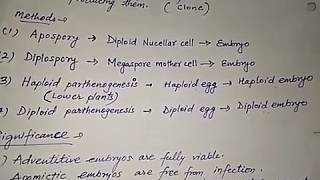 producing them. (clone)
Methods →
(1) Apospory → Diploid Nucellar cell → Embryo
(2) Diplospory → Megaspore mother cell → Embryo
3) Haploid parthenogenesis → Haploid egg → Haploid embryo
(Lower plants)
) Diploid parthenogenesis → Diploid egg → Diploid embryo
Significance →
) Adventitive embryos are fully viable.
Apomictic embryos are free from infection.